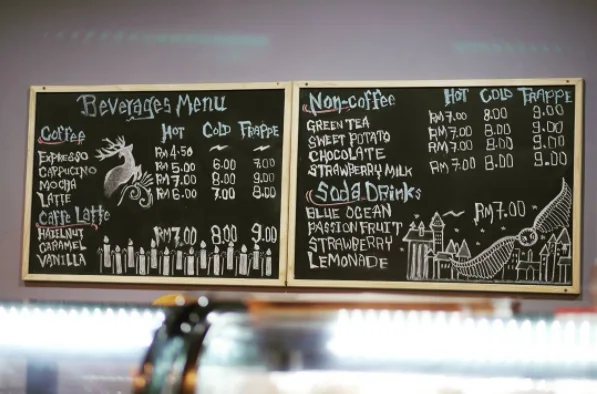 Beverages Menu
Coffee HOT COLD FRAPPE
EXPRESSO RM 4.50 ~ ~
CAPPUCINO RM 5.00 6.00 7.00
MOCHA RM 7.00 8.00 9.00
LATTE RM 6.00 7.00 8.00
Caffe Latte
HAZELNUT RM7.00 8.00 9.00
CARAMEL
VANILLA
Non-coffee HOT COLD FRAPPE
GREEN TEA RM7.00 8.00 9.00
SWEET POTATO RM7.00 8.00 9.00
CHOCOLATE RM7.00 8.00 9.00
STRAWBERRY MILK RM 7.00 8.00 9.00
Soda Drinks
BLUE OCEAN RM7.00
PASSION FRUIT
STRAWBERRY
LEMONADE